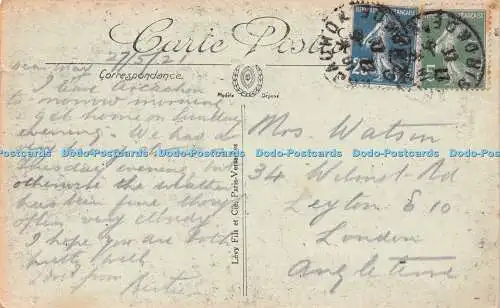 Carte Postale
Correspondance.
Modèle Déposé
27/5/21
Dear May
I leave Arcachon
to morrow morning
get home on Sunday
evening. We had a
Tuesday evening, but
otherwise the weather
has been fine though
often very cloudy
I hope you are both
pretty well
Love from Bertie
Lévy Fils et Cie, Paris-Versailles
Mrs. Watson
34 Wilmot Rd
Leyton E 10
London
Angleterre
Dodo-Postcards Dodo-Postcards Dodo-Postcards Dodo-Postcards Dodo-Postcards Dodo-Postcards